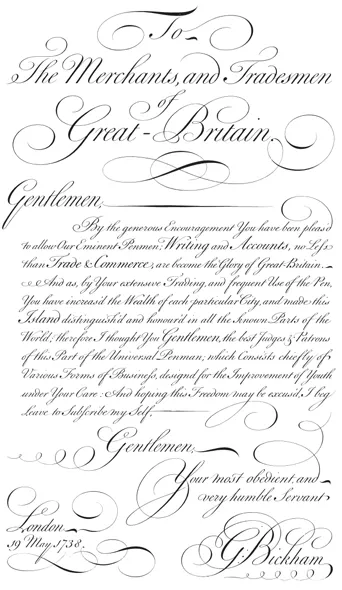 To
The Merchants, and Tradesmen
of
Great-Britain.
Gentlemen,
By the generous Encouragement You have been pleas'd
to allow Our Eminent Penmen, Writing and Accounts, no Less
than Trade & Commerce, are become the Glory of Great-Britain.
And as, by Your extensive Trading, and frequent Use of the Pen,
You have increas'd the Wealth of each particular City, and made this
Island distinguish'd and honour'd in all the known Parts of the
World; therefore I thought You Gentlemen, the best Judges & Patrons
of this Part of the Universal Penman; which Consists chiefly of
Various Forms of Business, design'd for the Improvement of Youth
under Your Care: And hoping this Freedom may be excus'd, I beg
leave to Subscribe my Self,
Gentlemen,
Your most obedient, and
very humble Servant
London
19 May 1738.
G. Bickham